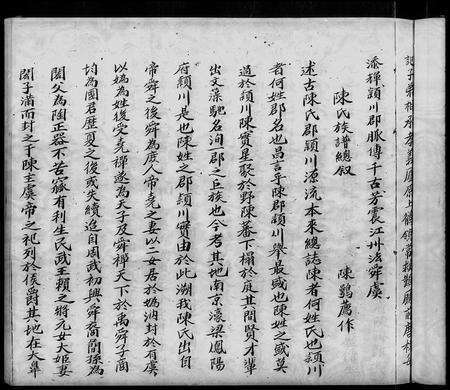 派禪潁川郡脈傳千古芳震江州法舜虞
陳氏族譜總敘
陳鶚薦作
述古陳氏郡潁川源流本來總誌陳者何姓氏也潁川
者何姓郡名也曷言乎陳郡潁川舉最盛也陳姓之盛莫
過於潁川陳實星聚於野陳蕃下榻於庭其間賢才輩
出文藻馳名洵郡之巨族也今考其地南京濠梁鳳陽
府潁川是也陳姓之郡潁川實由於此溯我陳氏出自
帝舜之後舜為庶人帝堯之妻以二女居於媯汭封於有虞
以媯為姓後受堯禪遂為天子及舜禪天下於禹舜子商
均為國君歷夏之後或失續追自周武初興舜裔閼孫為
閼父為陶正器不苦窳有利生民武王賴之將元女大姬妻
閼子滿而封之于陳主虞帝之祀列於侯爵其地在大皞